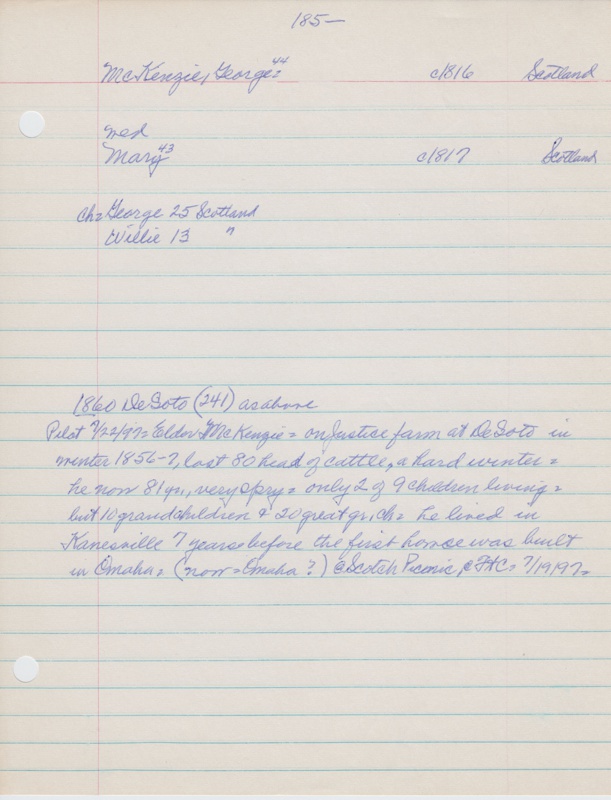 185-
McKenzie, George= 44 c1816 Scotland
med
Mary 43 c1817 Scotland
ch= George 25 Scotland
Willie 13 "
1860 DeSoto (241) as above
Pilot 7/22/97= Elder McKenzie= on Justice farm at DeSoto in
winter 1856-7, lost 80 head of cattle, a hard winter=
he now 81 yr., very spry= only 2 of 9 children living=
but 10 grandchildren & 20 great gr. ch= he lived in
Kanesville 7 years before the first house was built
in Omaha= (now=Omaha?) @ Scotch Picnic, @ FtC= 7/19/97=